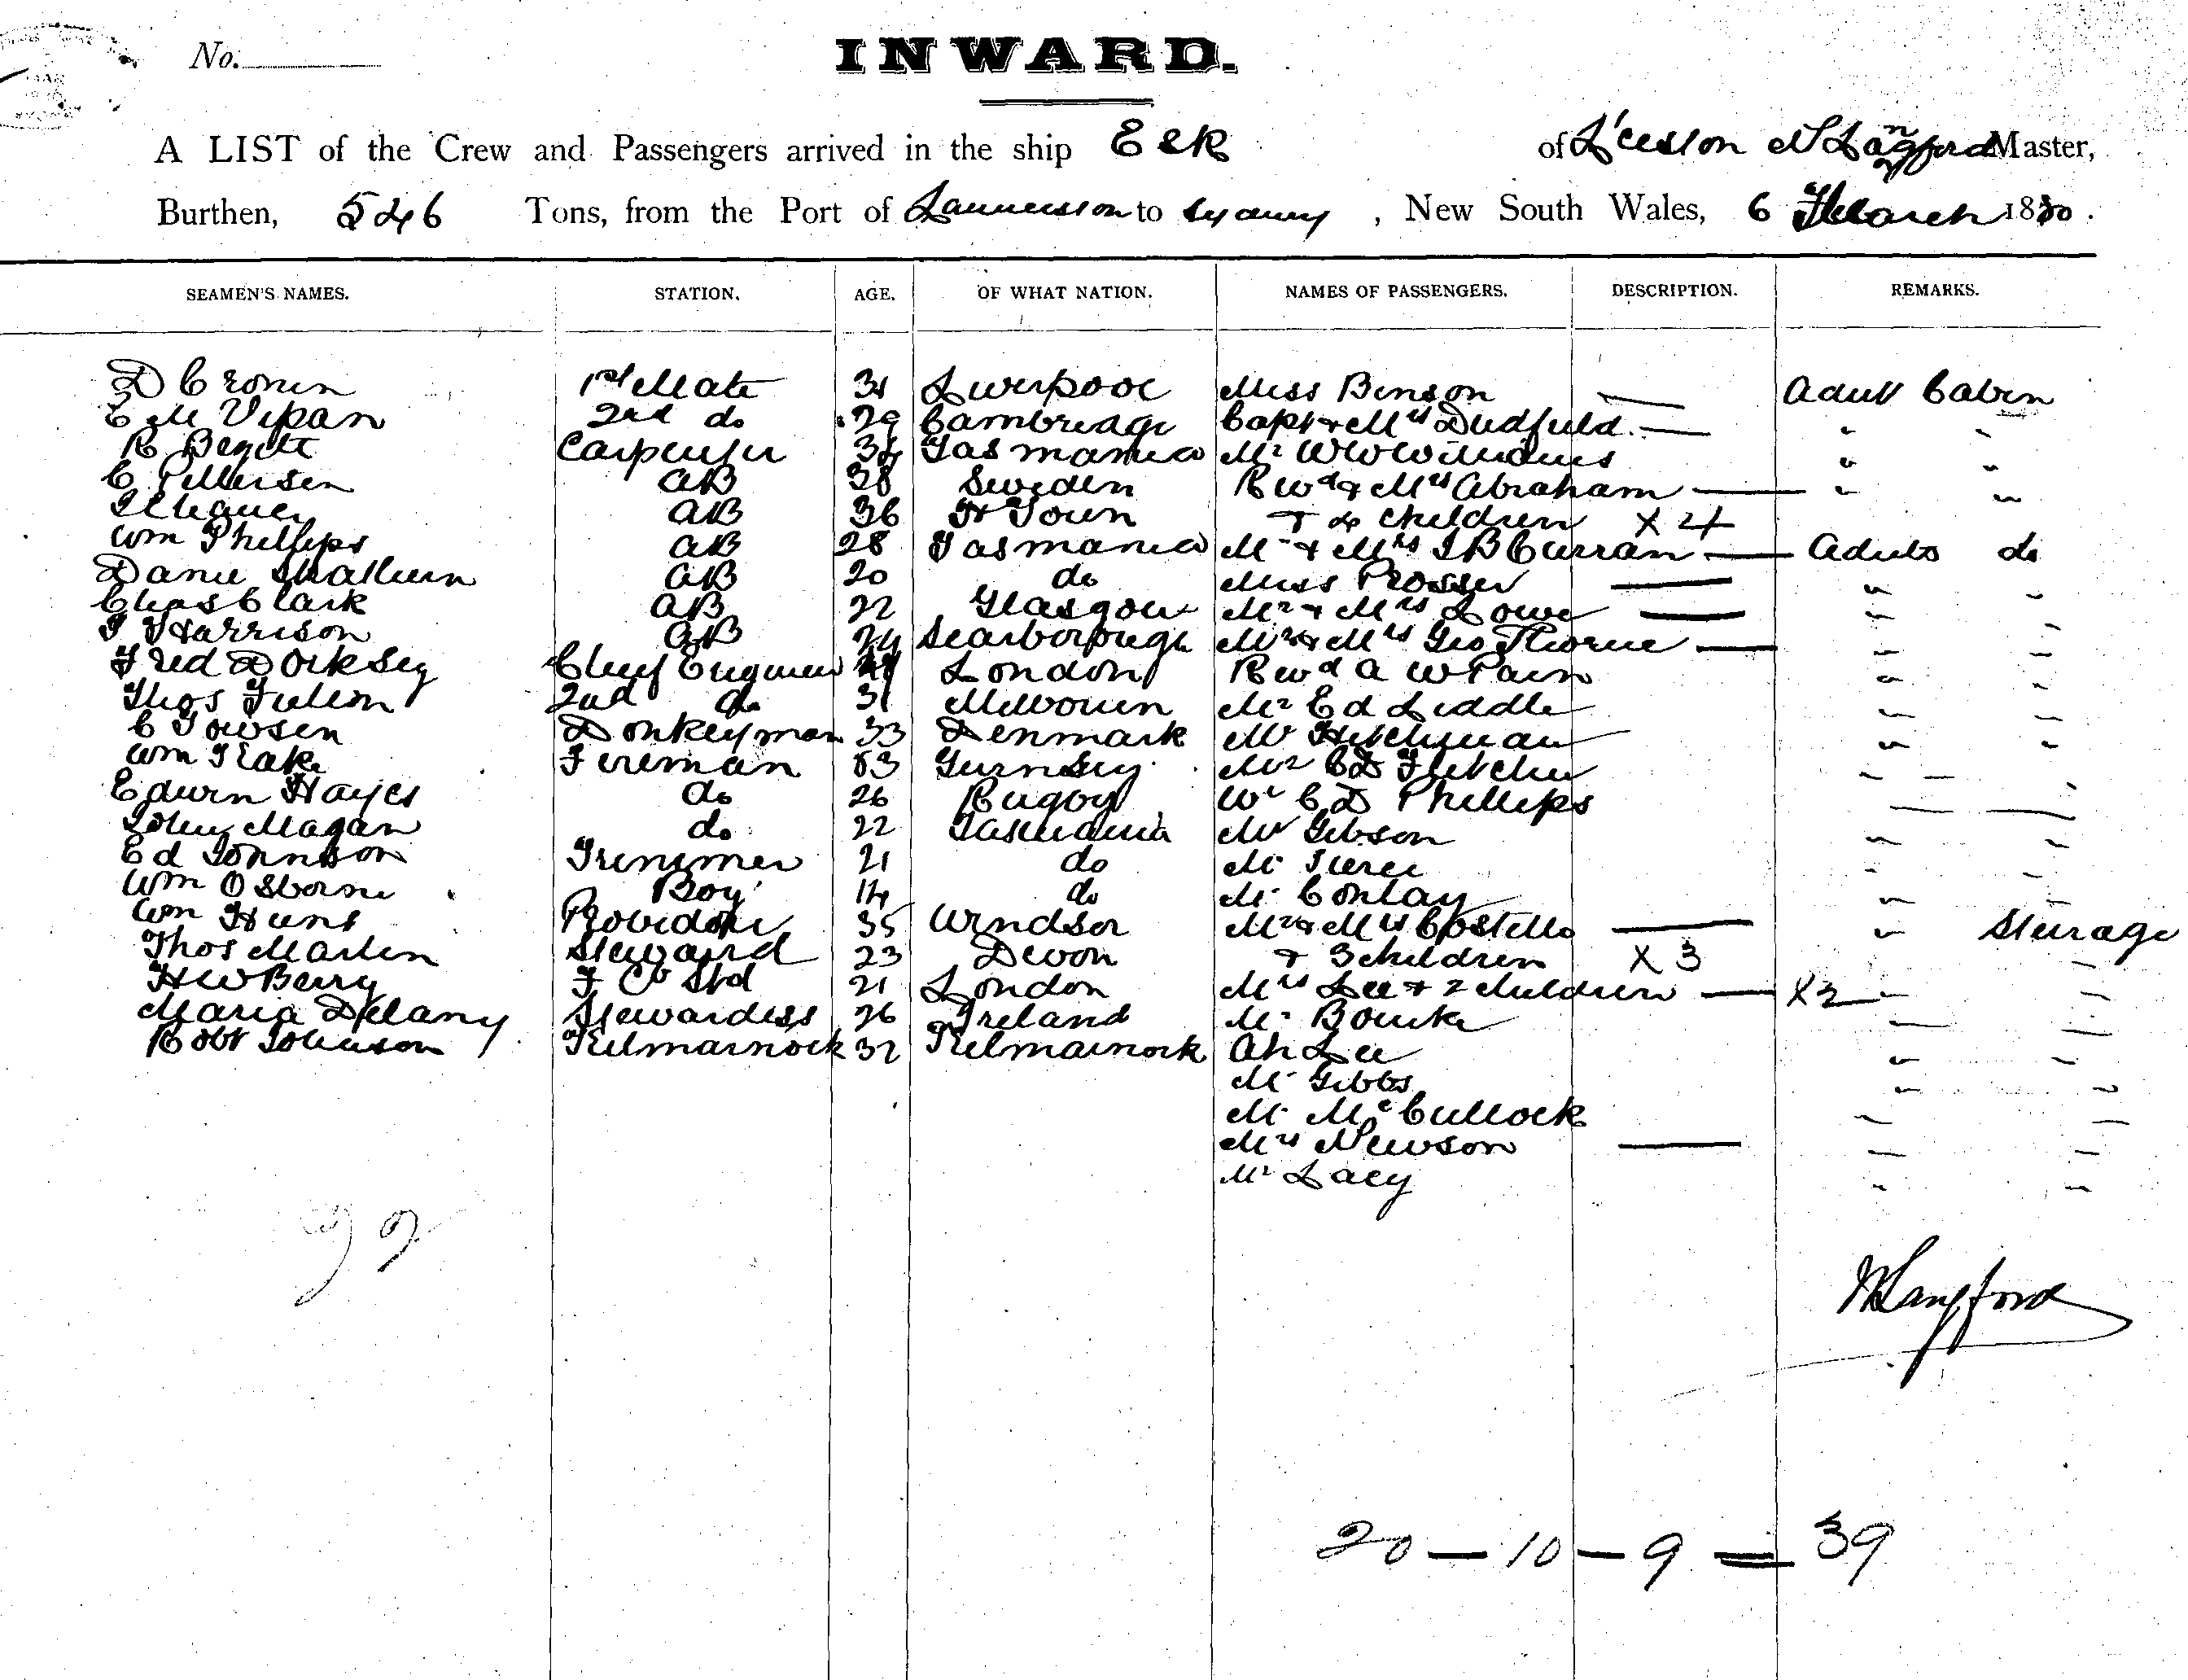 No.
INWARD.
A LIST of the Crew and Passengers arrived in the ship Esk of L'ceston N Langford Master,
Burthen, 546 Tons, from the Port of Launceston to Sydney, New South Wales, 6 March 1880.
SEAMEN'S NAMES. STATION. AGE. OF WHAT NATION. NAMES OF PASSENGERS. DESCRIPTION. REMARKS.
D Cronin 1st Mate 31 Liverpool Miss Benson — Adult Cabin
E M Vipan 2nd do 29 Cambridge Capt & Mrs Dudfield — " "
R Carpenter 34 Tasmania Mr W W Williams " "
C Pettersen AB 38 Sweden Revd & Mrs Abraham — " "
AB 36 H Town & 4 children X 4
Wm Phillips AB 28 Tasmania Mr & Mrs J B Curran — Adults do
AB 20 do Miss Prosser — " "
Chas Clark AB 22 Glasgow Mr & Mrs Lowe — " "
J Harrison AB 24 Scarborough Mr & Mrs Geo Thorne — " "
Fred Dorksey Chief Engineer London Revd A W Pain " "
Thos 2nd do 31 Melbourn Mr Ed Liddle " "
C Towsen Donkeyman 33 Denmark Mr " "
Wm Fireman 53 Gurnsey Mr C D Fletcher " "
Edwin Hayes do 26 Rugby Mr C D Phillips — —
John Magan do 22 Tasmania Mr Gibson " "
Ed Johnson Trimmer 21 do Mr Pierce " "
Wm Osborne Boy 14 do Mr Conlay " "
Wm Hunt Providore 35 Windsor Mr & Mrs Costello — " Steerage
Thos Martin Steward 23 Devon & 3 children X 3 "
H W Berry F Cb Std 21 London Mrs Lee & 2 children — X 2 " "
Maria Delany Stewardess 26 Ireland Mr Bourke " "
Robt Johnson Kilmarnock 32 Kilmarnock Ah Lee " "
Mr Gibbs " "
Mr McCullock " "
Mrs Newson — " "
Mr Lacy " "
N Langford
20 — 10 — 9 = 39